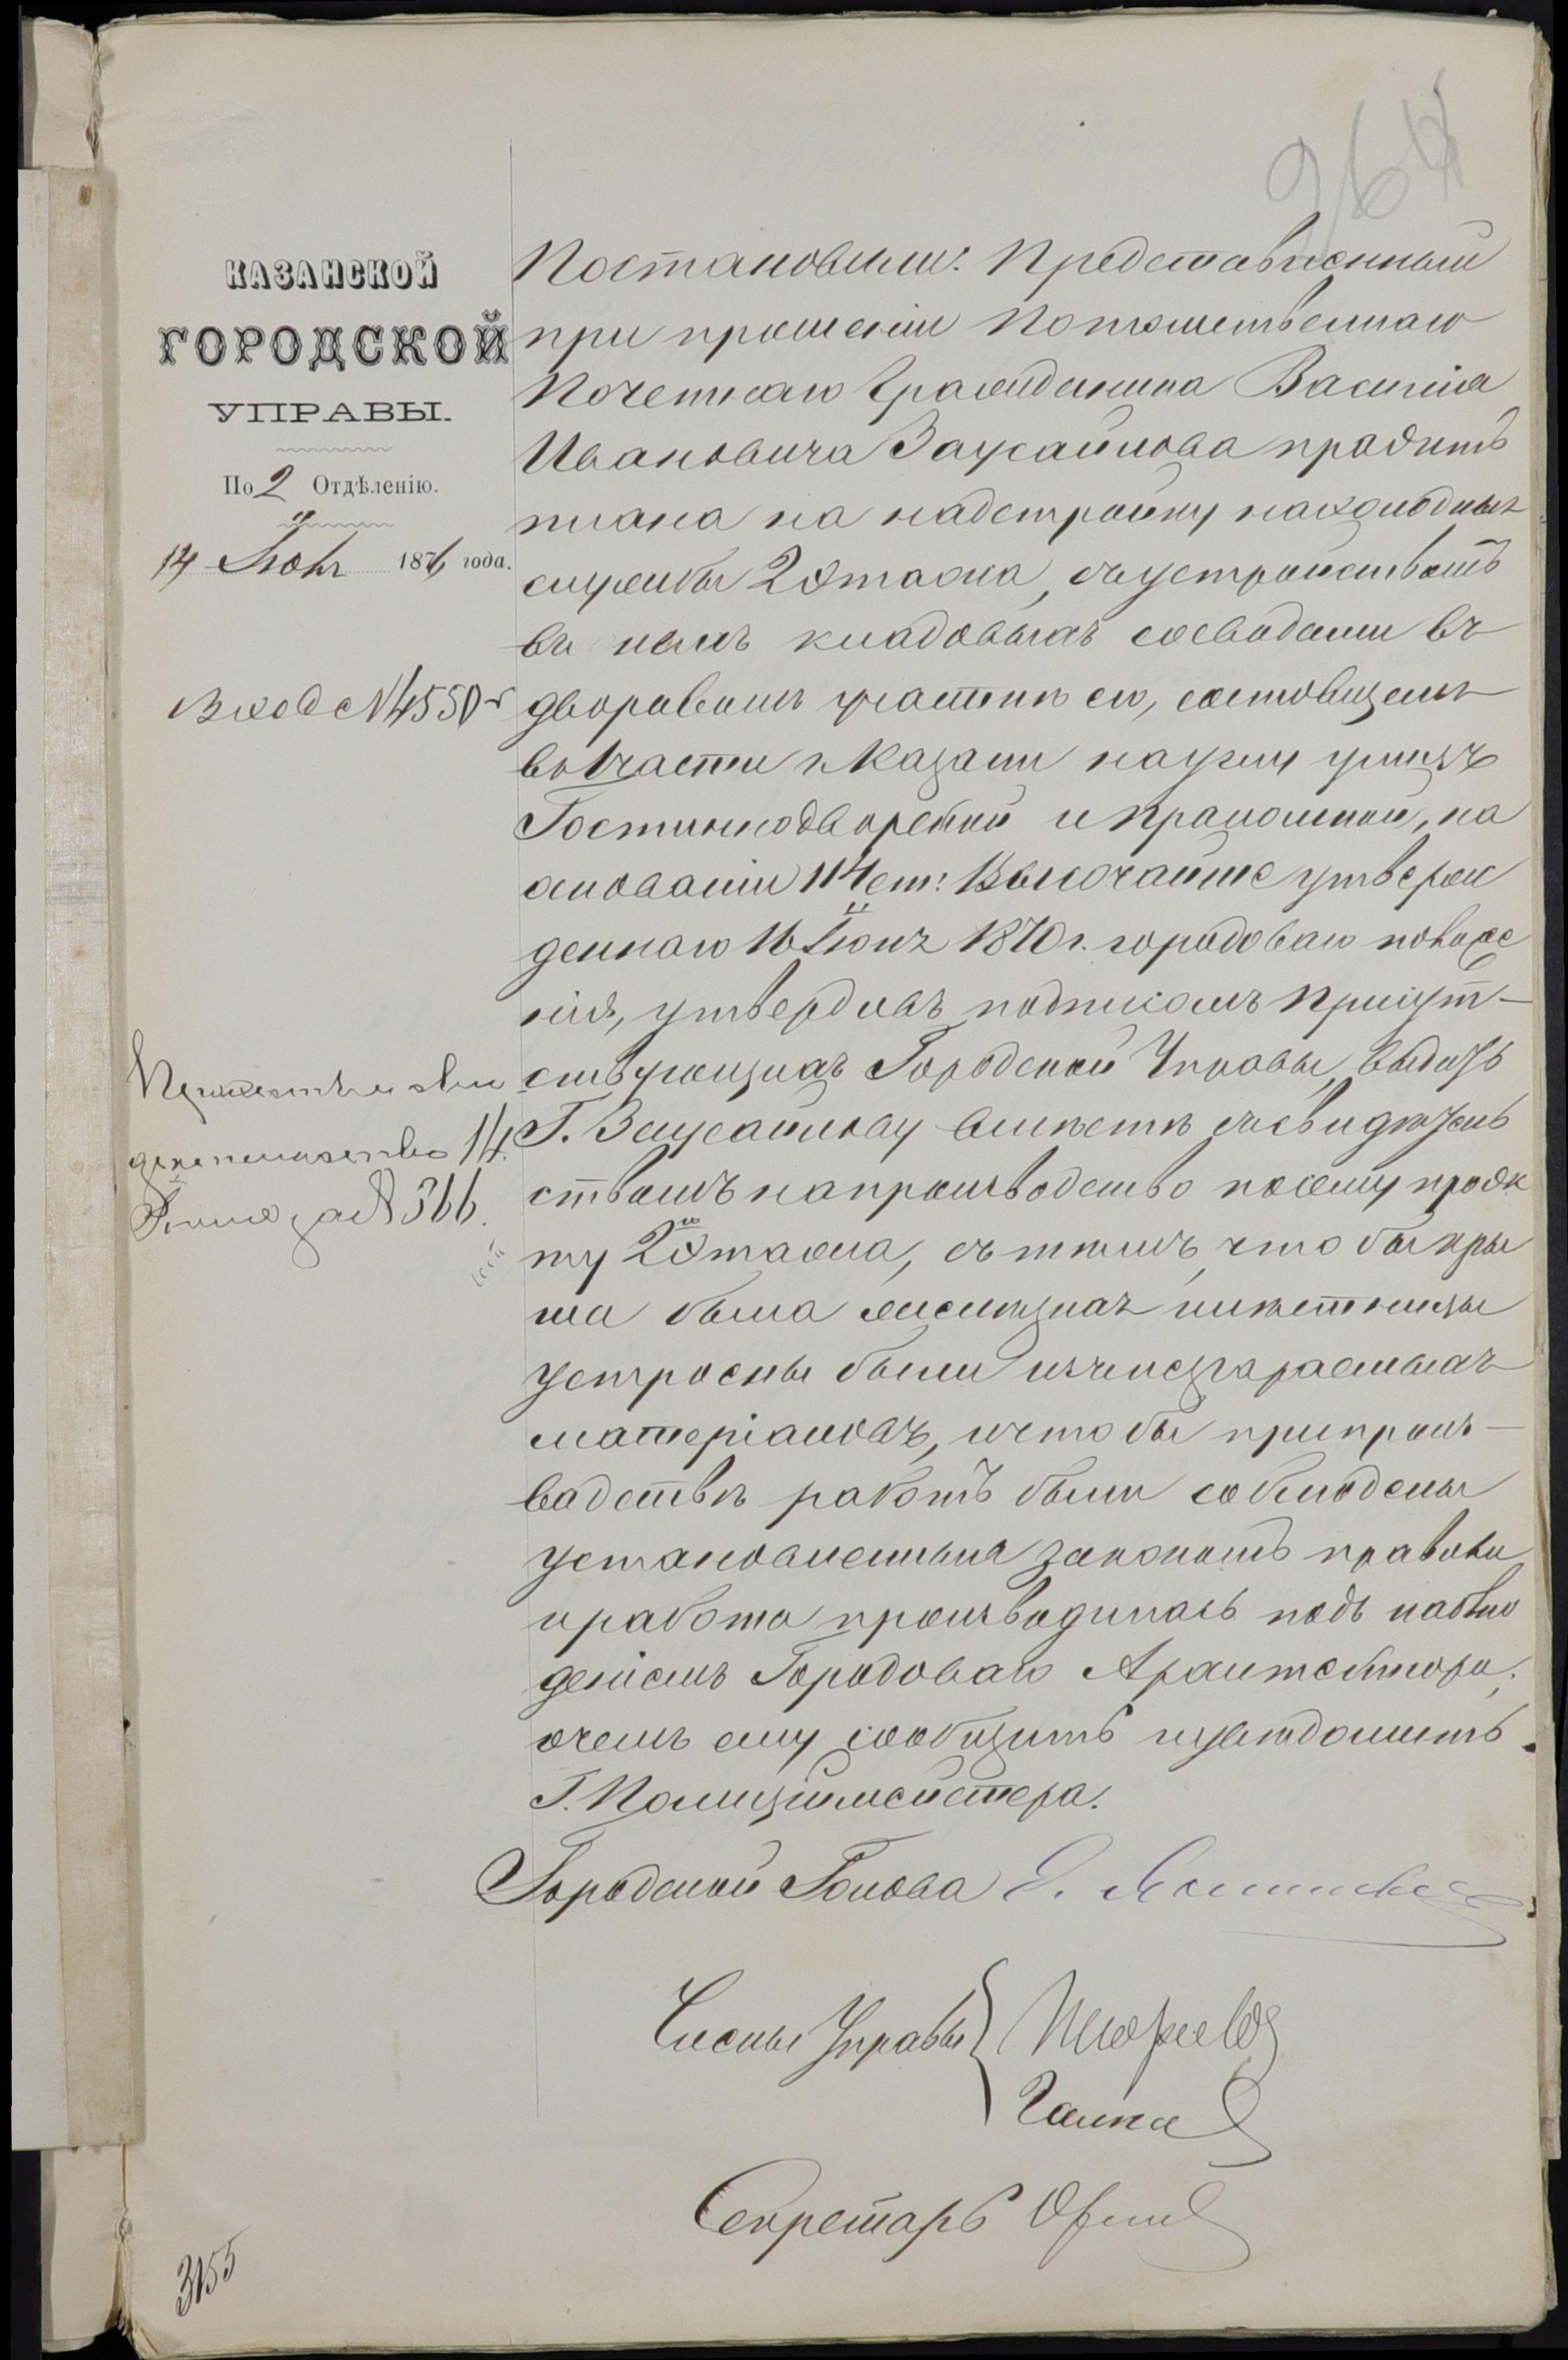 964
КАЗАНСКОЙ
ГОРОДСКОЙ
УПРАВЫ.
По 2 Отдѣленію.
14 Іюня 1876 года.
Вход. № 4550
Постановили: Представленный
при прошеніи Потомственнаго
Почетнаго Гражданина Василія
Ивановича Заусайлова проэктъ
плана на надстройку на холодныхъ
службы 2 этажа, съ устройствомъ
въ немъ кладовыхъ со сводами въ
дворовомъ участкѣ его, состоящемъ
во 1 части г. Казани на углу улицъ
Гостиннодворской и Проломной, на
основаніи 114 ст: Высочайше утверж
деннаго 16 Іюня 1870 г. городоваго положе
нія, утвердивъ подписомъ Присут-
ствующихъ Городской Управы, выдать
Г. Заусайлову вмѣстѣ съ свидѣтель
ствомъ на производство по сему проэк
ту 2го этажа, съ тѣмъ, что бы кры
ша была и лѣстницы
устроены были изъ несгараемыхъ
матеріаловъ, и что бы при произ-
водствѣ работъ были соблюдены
установленныя закономъ правила
и работа производилась подъ наблю
деніемъ Городоваго Архитектора,
о чемъ ему сообщить и увѣдомить
Г. Полицiймейстера.
Городской Голова Э. Янишевскій
Члены Управы
Секретарь
14.
за № 366.
3155